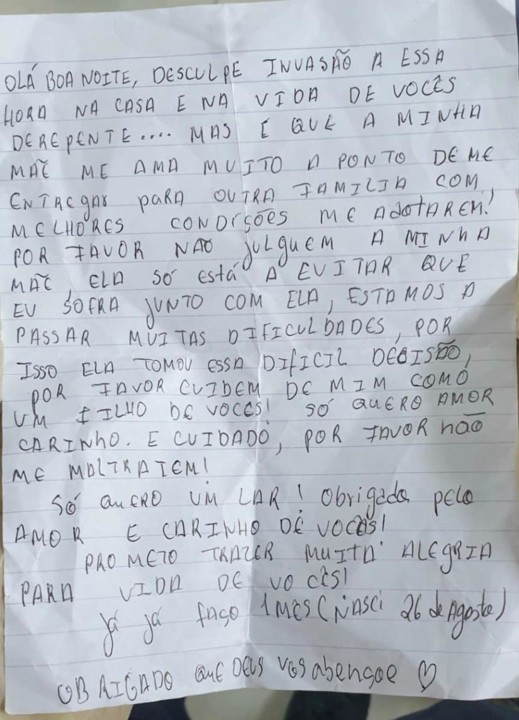 OLÁ BOA NOITE, DESCULPE INVASÃO A ESSA
HORA NA CASA E NA VIDA DE VOCÊS
DEREPENTE.... MAS É QUE A MINHA
MÃE ME AMA MUITO A PONTO DE ME
ENTREGAR PARA OUTRA FAMILIA COM,
MELHORES CONDIÇÕES ME ADOTAREM!
POR FAVOR NÃO JULGUEM A MINHA
MÃE, ELA SÓ ESTÁ A EVITAR QUE
EU SOFRA JUNTO COM ELA, ESTAMOS A
PASSAR MUITAS DIFICULDADES, POR
ISSO ELA TOMOU ESSA DIFICIL DECISÃO,
POR FAVOR CUIDEM DE MIM COMO
UM FILHO DE VOCES! SÓ QUERO AMOR
CARINHO. E CUIDADO, POR FAVOR NÃO
ME MALTRATEM!
SÓ QUERO UM LAR! Obrigada pelo
AMOR E CARINHO DE VOCÊS!
PROMETO TRAZER MUITA ALEGRIA
PARA VIDA DE VOCÊS!
já já faço 1 MES (NASCI 26 de Agosto)
OBRIGADO QUE DEUS VOS abençoe ♡